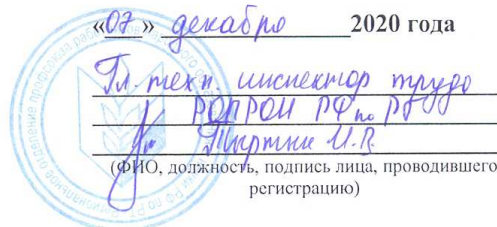 «07» декабря 2020 года
Гл. техн. инспектор труда
РОПРОИ РФ по РТ
И.В.
(ФИО, должность, подпись лица, проводившего
регистрацию)